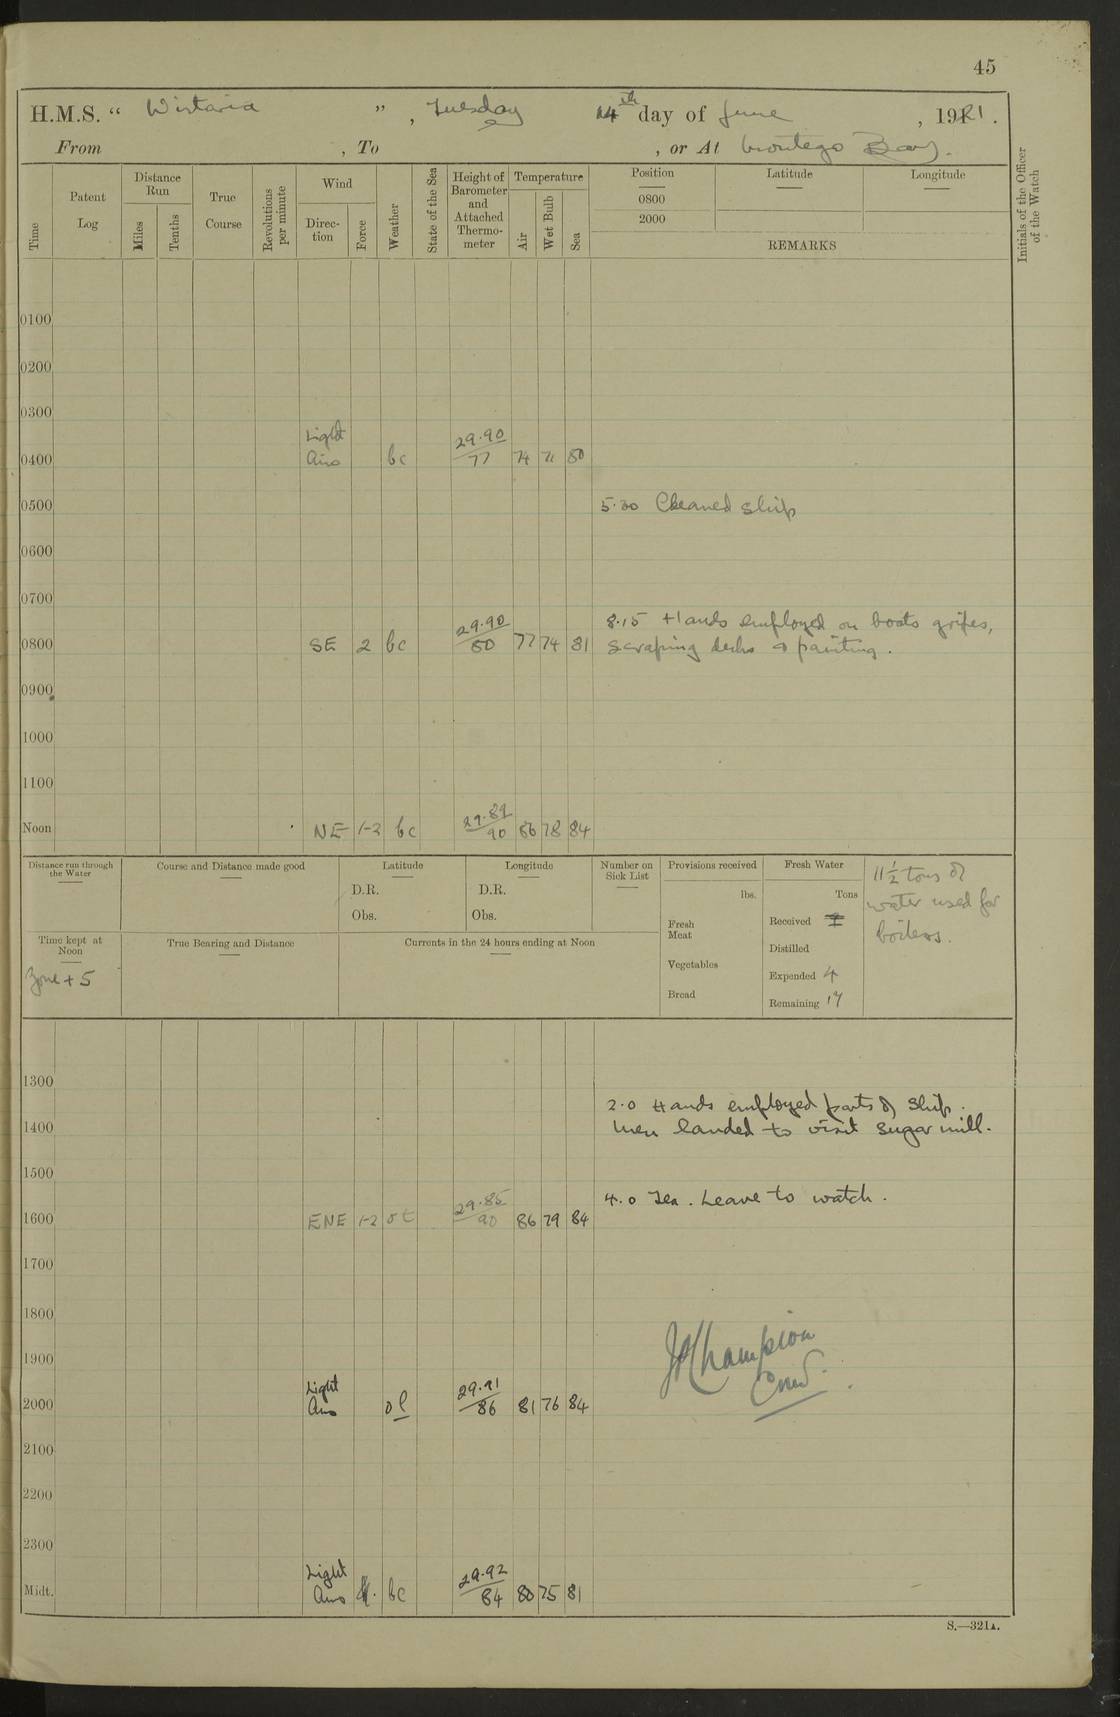 45
H.M.S. “ Wistaria ”, Tuesday 14th day of June, 1921.
From , To , or At Montego Bay.
Time
Patent Log
Distance Run
Miles
Tenths
True Course
Revolutions per minute
Wind
Direction
Force
Weather
State of the Sea
Height of Barometer and Attached Thermometer
Temperature
Air
Wet Bulb
Sea
Position
0800
2000
Latitude
Longitude
REMARKS
Initials of the Officer of the Watch
0100
0200
0300
0400 Light Airs bc 29.90/77 74 71 80
0500 5.30 Cleaned ship
0600
0700
8.15 Hands employed on boats gripes,
0800 SE 2 bc 29.90/80 77 74 81 scraping decks & painting.
0900
1000
1100
Noon NE 1-2 bc 29.89/90 86 78 84
Distance run through the Water
Course and Distance made good
Latitude
D.R.
Obs.
Longitude
D.R.
Obs.
Number on Sick List
Provisions received
lbs.
Fresh Meat
Vegetables
Bread
Fresh Water
Tons
Received
Distilled
Expended 4
Remaining 17
11½ tons of
water used for
boilers.
Time kept at Noon
Zone + 5
True Bearing and Distance
Currents in the 24 hours ending at Noon
1300
2.0 Hands employed parts of ship.
1400 Men landed to visit sugar mill.
1500
4.0 Tea. Leave to watch.
1600 ENE 1-2 29.85/90 86 79 84
1700
1800
1900
JP Champion
Cmd.
2000 Light Airs ol 29.91/86 81 76 84
2100
2200
2300
Midt. Light Airs bc 29.92/84 80 75 81
S.—321A.